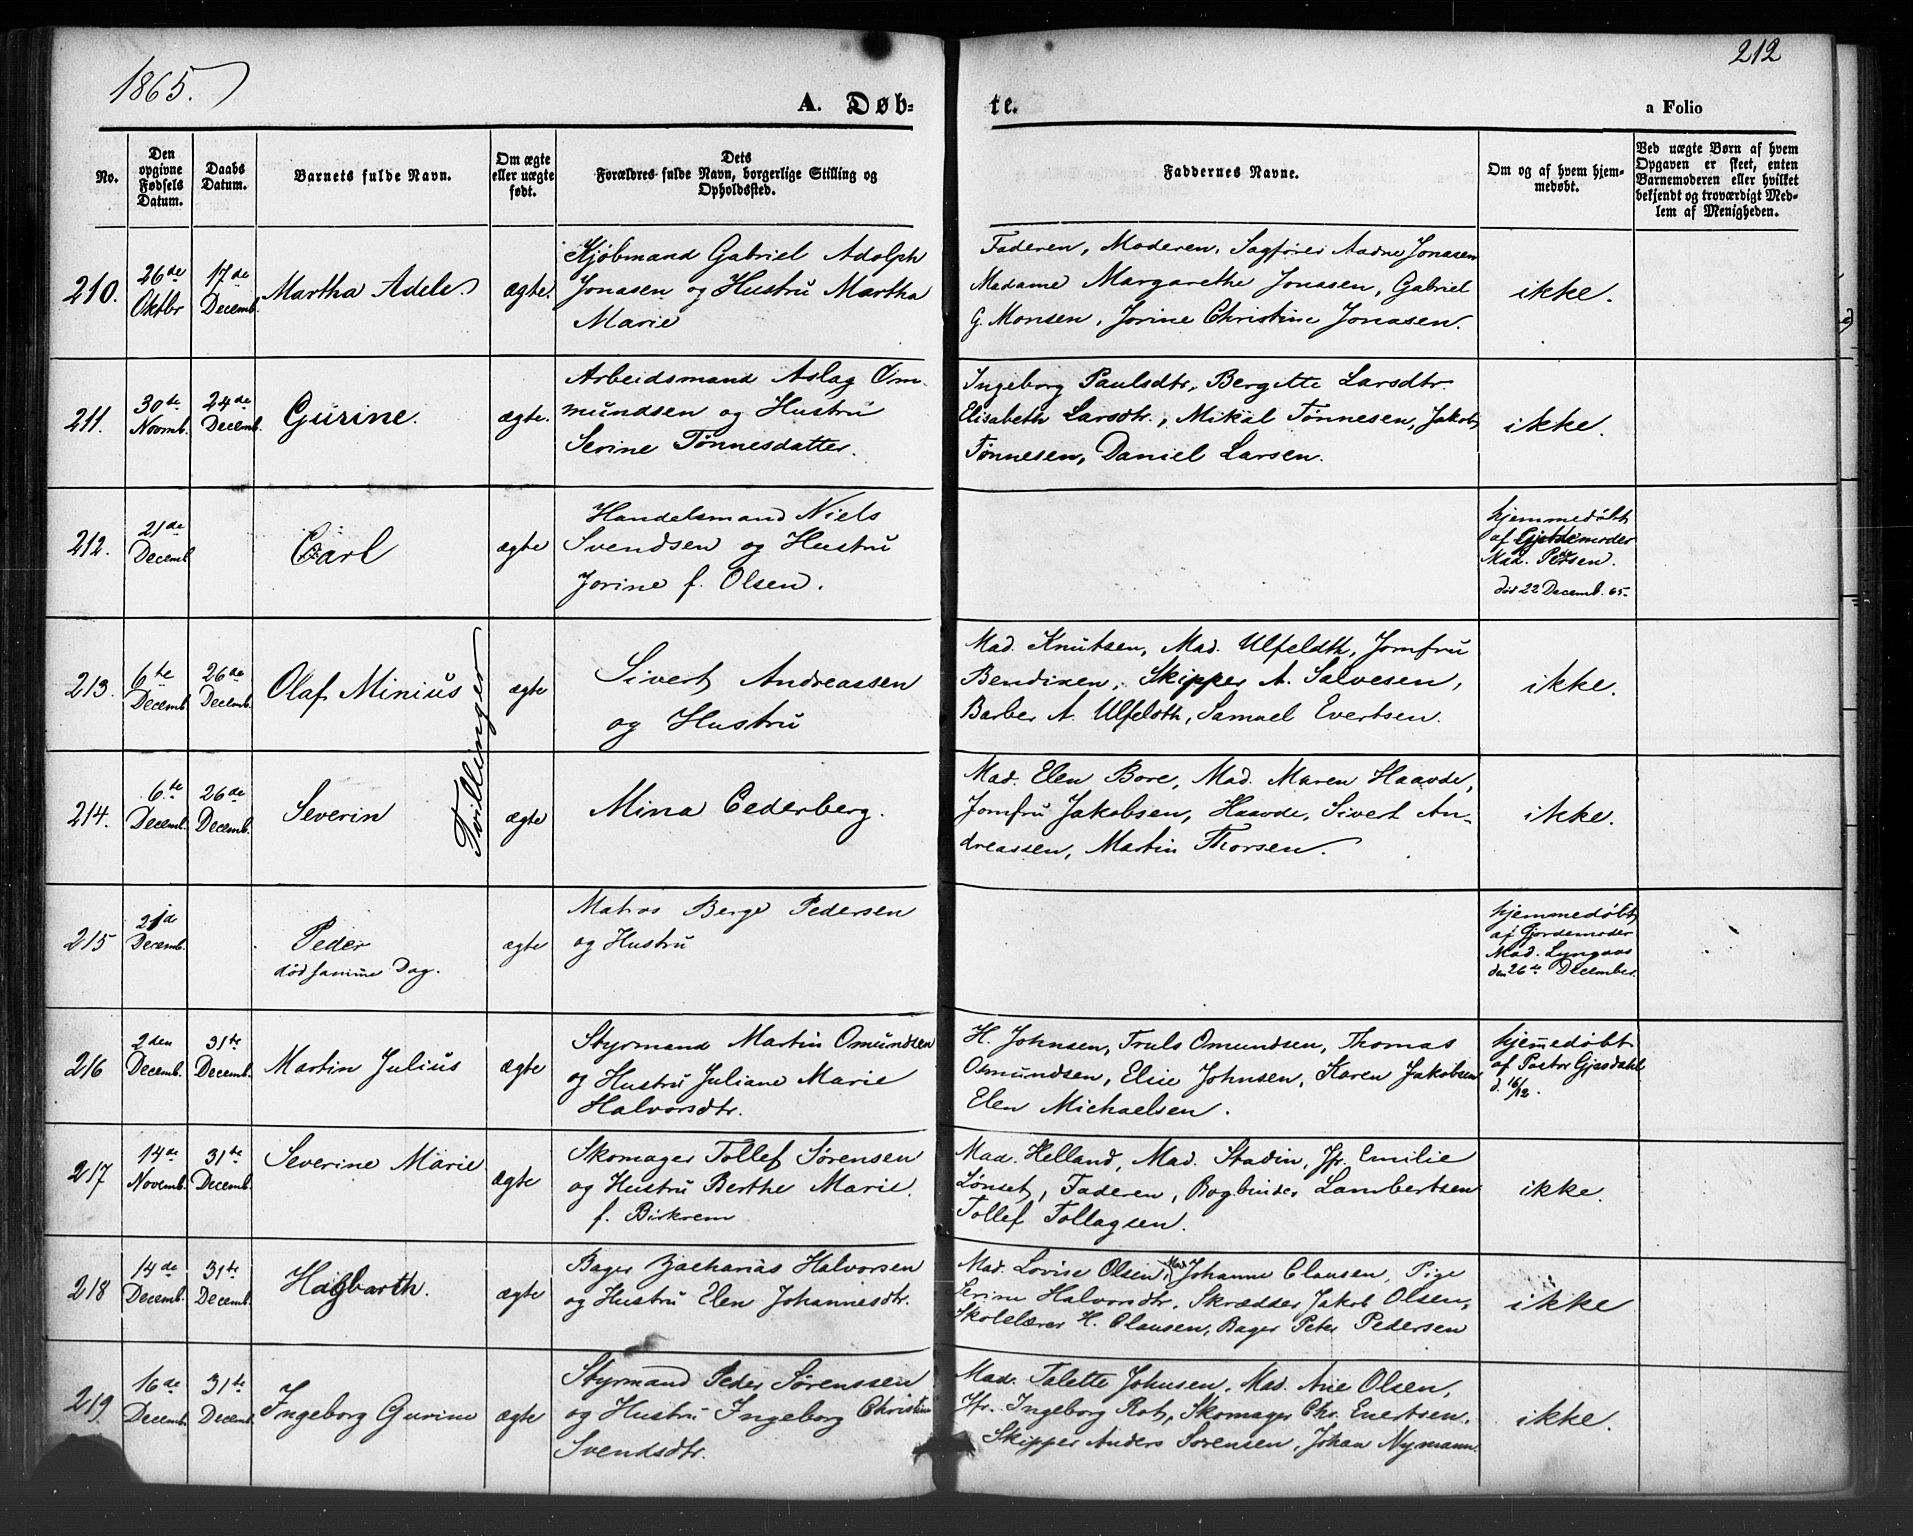 1865.
212
A. Døb-
te.
a Folio
No.
Den opgivne Fødsels Datum.
Daabs Datum.
Barnets fulde Navn.
Om ægte eller uægte født.
Dets Forældres fulde Navn, borgerlige Stilling og Opholdssted.
Faddernes Navne.
Om og af hvem hjemmedøbt.
Ved uægte Børn af hvem Opgaven er skeet, enten Barnemoderen eller hvilket bekjendt og troværdigt Medlem af Menigheden.
210.
26de Oktbr
17de Decemb.
Martha Adele
ægte.
Kjøbmand Gabriel Adolph
Jonasen og Hustru Martha
Marie
Faderen, Moderen, Sagfører Aadne Jonasen
Madame Margarethe Jonasen, Gabriel
G. Monsen, Jorine Christine Jonasen.
ikke.
211.
30te Novmb.
24de Decemb.
Gurine.
ægte.
Arbeidsmand Aslag Om-
mundsen og Hustru
Serine Tønnesdatter.
Ingeborg Paulsdtr, Bergitte Larsdtr.
Elisabeth Larsdtr., Mikal Tønnesen, Jakob
Tønnesen, Daniel Larsen.
ikke.
212.
21de Decemb
Carl
ægte
Handelsmand Niels
Svendsen og Hustru
Jorine f. Olsen.
hjemmedøbt
af Gjordemoder
Mad. Pedersen.
død 22 Decemb. 65.
213.
6te Decemb.
26de Decemb.
Olaf Minius
Tvillinger
ægte
Sivert Andreassen
og Hustru
Mad. Knutsen, Mad. Ulfeldth, Jomfru
Bendixen, Skipper A. Salvesen,
Barber A. Ulfeldth, Samuel Evertsen.
ikke.
214.
6te Decemb.
26de Decemb.
Severin
ægte
Mina Cederberg.
Mad. Elen Bore, Mad. Maren Haavde,
Jomfru Jakobsen, Haavde, Sivert An-
dreassen, Martin Thorsen.
ikke.
215
21d Decemb.
Peder
død samme Dag.
ægte
Matros Berge Pedersen
og Hustru
hjemmedøbt
af Gjordemoder
Mad. Lyngaas
den 26te December.
216
2den Decemb.
31te Decemb.
Martin Julius
ægte
Styrmand Martin Omundsen
og Hustru Juliane Marie
Halvorsdtr.
H. Johnsen, Truls Omundsen, Thomas
Osmundsen, Elise Johnsen, Karen Jakobsen
Elen Michaelsen.
hjem̄edøbt
af Pastor Gjesdahl
d. 16/12.
217
14de Novemb.
31te Decemb.
Severine Marie
ægte
Skomager Tollef Sørensen
og Hustru Berthe Marie.
f. Birkrem
Mad. Helland, Mad. Stadin, Jfr. Emilie
Lønset, Faderen, Bogbinder Lambertsen
Tollef Tollagsen.
ikke.
218
14de Decemb.
31te Decemb.
Hagbarth.
ægte
Bager Zacharias Halvorsen
og Hustru Elen Johannesdtr.
Mad. Lovise Olsen, Mad Johanne Clausen, Pige
Serine Halvorsdtr., Skrædder Jakob Olsen,
Skolelærer H. Clausen, Bager Peter Pedersen
ikke
219.
16de Decemb.
31te Decemb.
Ingeborg Gurine
ægte
Styrmand Peder Sørenssen
og Hustru Ingeborg Christine
Svendsdtr.
Mad. Talette Johnsen, Mad. Ane Olsen,
Jfr. Ingeborg Rot, Skomager Chr. Evertsen.
Skipper Anders Sørensen, Johan Nymann.
ikke.